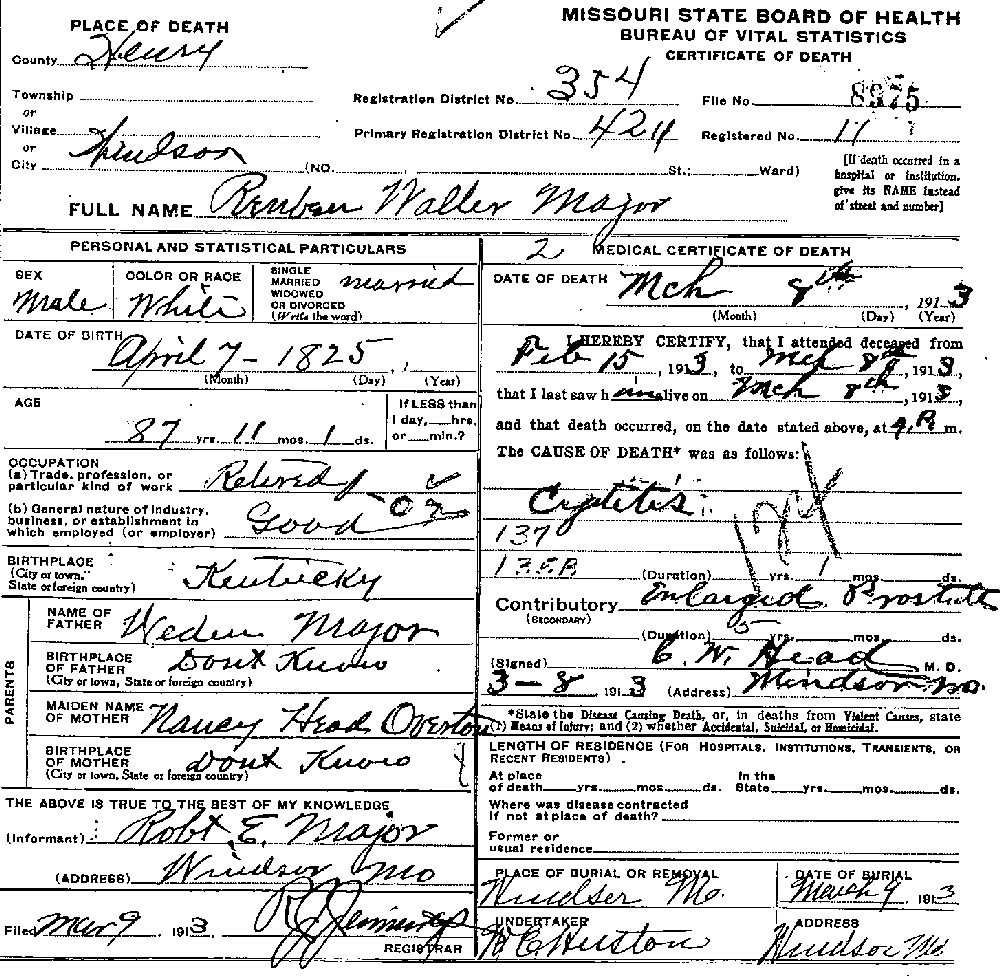 MISSOURI STATE BOARD OF HEALTH
BUREAU OF VITAL STATISTICS
CERTIFICATE OF DEATH
PLACE OF DEATH
County Henry
Township
or
Village
or
City Windsor (NO. St.; Ward)
Registration District No. 354 File No. 8975
Primary Registration District No. 4211 Registered No. 11
[If death occurred in a
hospital or institution,
give its NAME instead
of street and number]
FULL NAME Reuben Waller Major
PERSONAL AND STATISTICAL PARTICULARS
SEX Male
COLOR OR RACE White
SINGLE
MARRIED
WIDOWED
OR DIVORCED
(Write the word) married
DATE OF BIRTH April 7 - 1825
(Month) (Day) (Year)
AGE
87 yrs. 11 mos. 1 ds.
If LESS than
1 day, hrs.
or min.?
OCCUPATION
(a) Trade, profession, or
particular kind of work Retired
(b) General nature of industry,
business, or establishment in
which employed (or employer) Good
BIRTHPLACE
(City or town,
State or foreign country) Kentucky
PARENTS
NAME OF
FATHER Weden Major
BIRTHPLACE
OF FATHER
(City or town, State or foreign country) Dont Know
MAIDEN NAME
OF MOTHER Nancy Head Overton
BIRTHPLACE
OF MOTHER
(City or town, State or foreign country) Dont Know
THE ABOVE IS TRUE TO THE BEST OF MY KNOWLEDGE
(Informant) Robt. E. Major
(ADDRESS) Windsor Mo
Filed Mar 9 1913 R J Jennings
REGISTRAR
2 MEDICAL CERTIFICATE OF DEATH
DATE OF DEATH Mch 8th, 1913
(Month) (Day) (Year)
I HEREBY CERTIFY, that I attended deceased from
Feb 15, 1913, to Mch 8th, 1913,
that I last saw him alive on Mch 8th, 1913,
and that death occurred, on the date stated above, at P. m.
The CAUSE OF DEATH* was as follows:
Cystitis
124
137
135B
(Duration) yrs. mos. ds.
Contributory Enlarged Prostate
(SECONDARY)
(Duration) 5 yrs. mos. ds.
(Signed) C. W. Head M. D.
3-8 1913 (Address) Windsor Mo.
*State the Disease Causing Death, or, in deaths from Violent Causes, state
(1) Means of Injury; and (2) whether Accidental, Suicidal, or Homicidal.
LENGTH OF RESIDENCE (FOR HOSPITALS, INSTITUTIONS, TRANSIENTS, OR
RECENT RESIDENTS).
At place
of death yrs. mos. ds.
In the
State yrs. mos. ds.
Where was disease contracted
if not at place of death?
Former or
usual residence
PLACE OF BURIAL OR REMOVAL
Windser Mo.
DATE OF BURIAL
March 9 1913
UNDERTAKER
Huston
ADDRESS
Windsor Mo